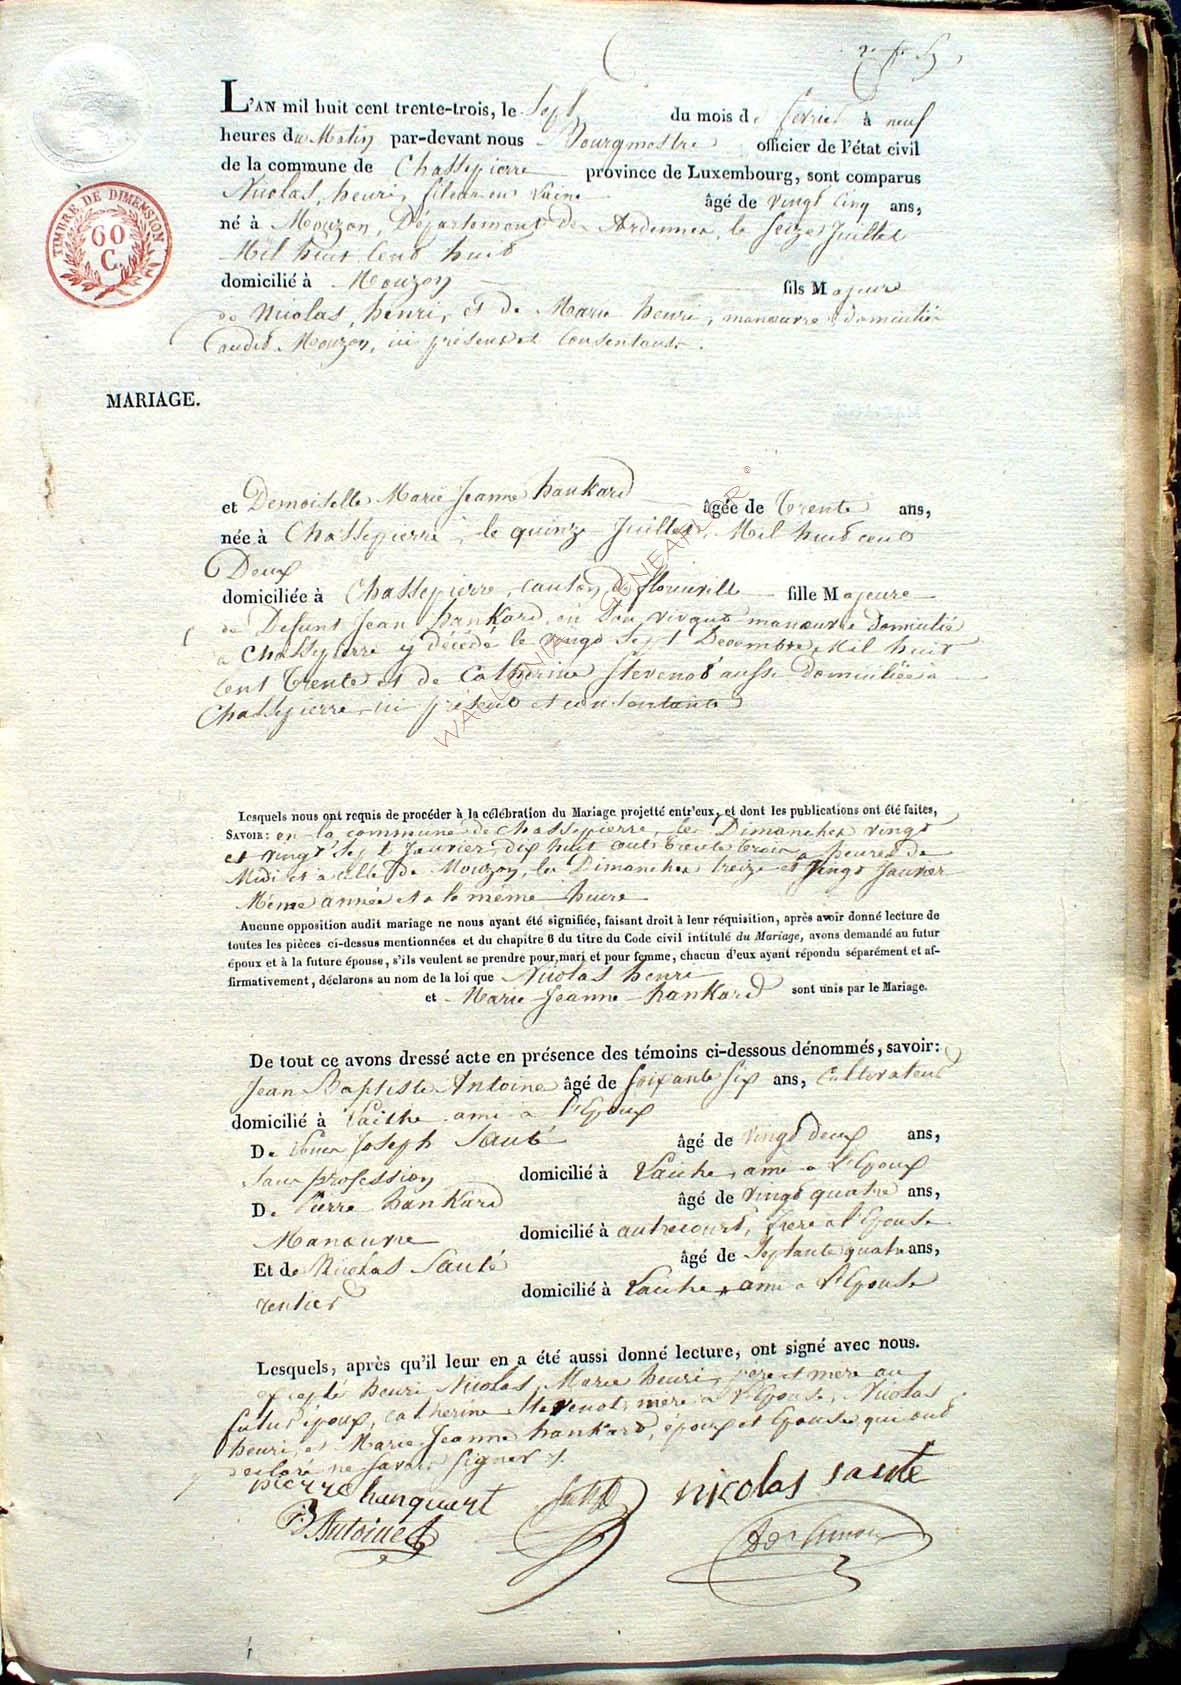 L'AN mil huit cent trente-trois, le Sept du mois de fevrier à neuf
heures du Matin par-devant nous Bourgmestre officier de l'état civil
de la commune de Chassepierre province de Luxembourg, sont comparus
Nicolas, henri, âgé de vingt Cinq ans,
né à Mouzon, Département des Ardennes, le Seize Juillet
Mil huit Cent huit
domicilié à Mouzon fils Majeure
de Nicolas, henri, et de Marie henri, manoeuvre domicilié
audit Mouzon, ici présent et Consentant.
TIMBRE DE DIMENSION
60
C.
MARIAGE.
et Demoiselle Marie Jeanne hankard âgée de trente ans,
née à Chassepierre, le quinze Juillet, Mil huit cent
Deux
domiciliée à Chassepierre, canton de florenville fille Majeure
de Defunt Jean hankard, en Son vivant manoeuvre domicilié
a Chassepierre y décédé le vingt Sept Decembre Mil huit
Cent trente et de Catherine Stevenot aussi domiciliée à
Chassepierre ici présent et consentante
WALLONIA GENEALOR ©
Lesquels nous ont requis de procéder à la célébration du Mariage projetté entr'eux, et dont les publications ont été faites,
SAVOIR: en la commune de Chassepierre, les Dimanches vingt
et vingt Sept Janvier dix huit cent trente trois a heures de
Midi et a celle de Mouzon, les Dimanches treize et vingt Janvier
Même année et a la même heure
Aucune opposition audit mariage ne nous ayant été signifiée, faisant droit à leur réquisition, après avoir donné lecture de
toutes les pièces ci-dessus mentionnées et du chapitre 6 du titre du Code civil intitulé du Mariage, avons demandé au futur
époux et à la future épouse, s'ils veulent se prendre pour mari et pour femme, chacun d'eux ayant répondu séparément et af-
firmativement, déclarons au nom de la loi que Nicolas henri
et Marie Jeanne hankard sont unis par le Mariage.
De tout ce avons dressé acte en présence des témoins ci-dessous dénommés, savoir:
Jean Baptiste Antoine âgé de soixante six ans, cultivateur
domicilié à Laiche ami a l'Epoux
De Joseph Sauté âgé de vingt deux ans,
Sans profession domicilié à Laiche, ami a l'Epoux
De Pierre hankard âgé de vingt quatre ans,
Manoeuvre domicilié à autrecourt, frere a l'Epouse
Et de Nicolas Sauté âgé de Septante quatre ans,
rentier domicilié à Laiche, ami a l'Epouse
Lesquels, après qu'il leur en a été aussi donné lecture, ont signé avec nous.
excepté henri Nicolas, Marie henri, pere et mere au
futur époux, catherine Stevenot mere a l'Epouse, Nicolas
henri, et Marie Jeanne hankard, époux et Epouse qui ont
declaré ne savoir signer.
pierre hanquart nicolas saute
JB Antoine